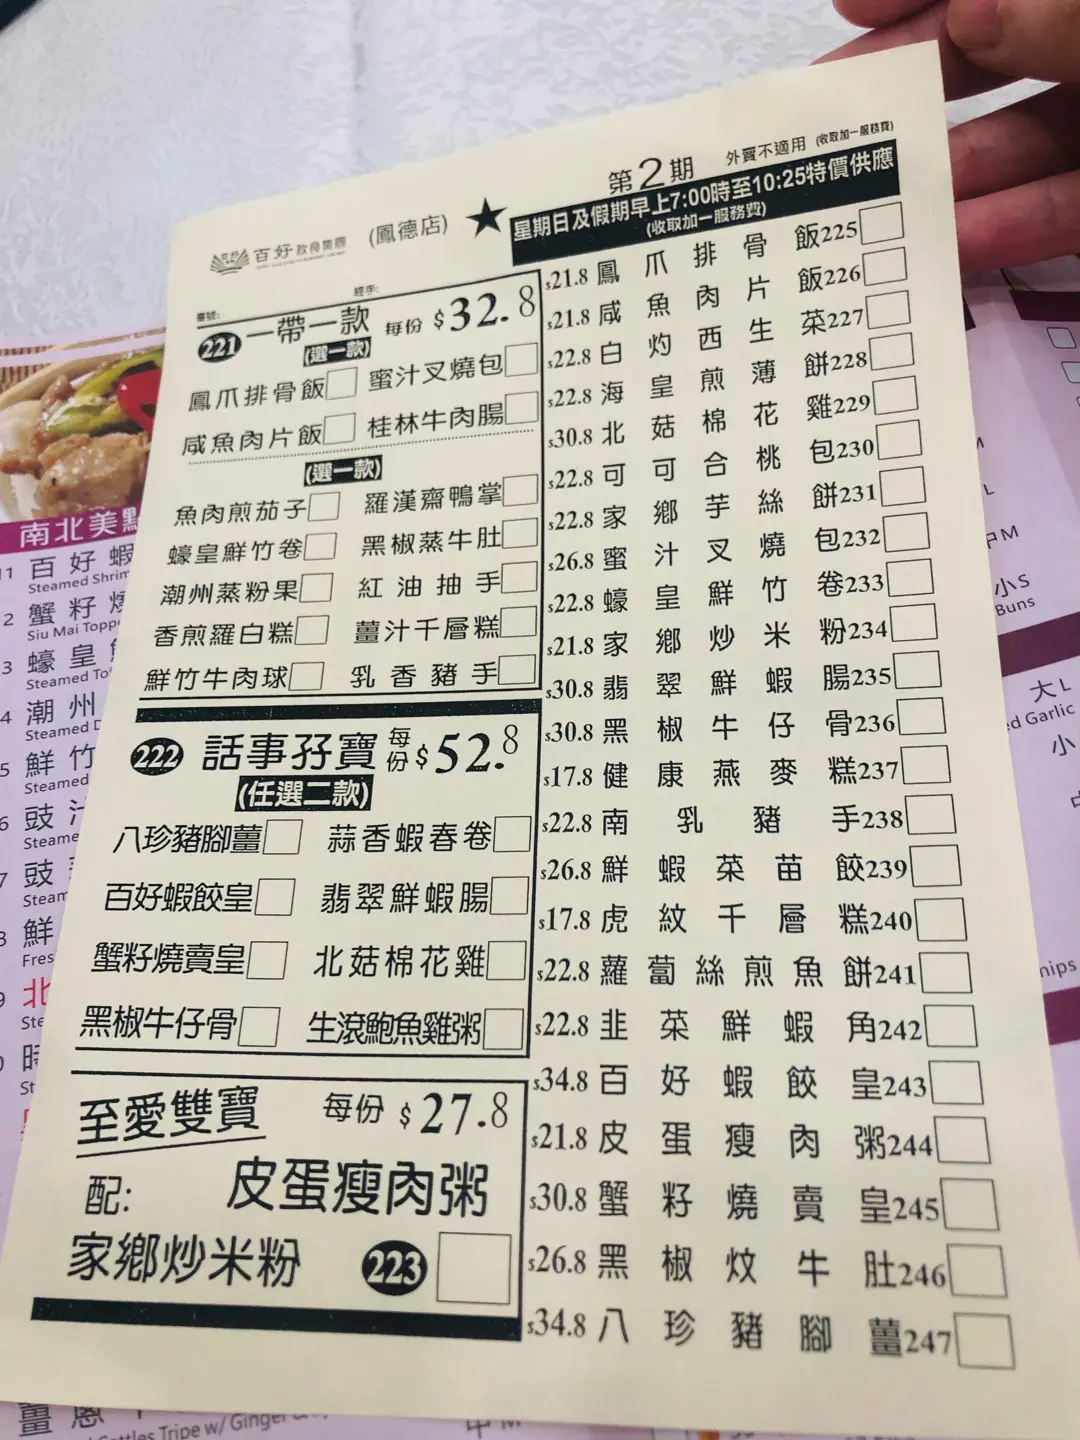 第2期
外賣不適用 (收取加一服務費)
百好飲食集團 (鳳德店) ★
星期日及假期早上7:00時至10:25特價供應
(收取加一服務費)
經手:
221 一帶一款 每份 $32.8
(選一款)
鳳爪排骨飯 蜜汁叉燒包
咸魚肉片飯 桂林牛肉腸
(選一款)
魚肉煎茄子 羅漢齋鴨掌
蠔皇鮮竹卷 黑椒蒸牛肚
潮州蒸粉果 紅油抽手
香煎羅白糕 薑汁千層糕
鮮竹牛肉球 乳香豬手
222 話事孖寶 每份 $52.8
(任選二款)
八珍豬腳薑 蒜香蝦春卷
百好蝦餃皇 翡翠鮮蝦腸
蟹籽燒賣皇 北菇棉花雞
黑椒牛仔骨 生滾鮑魚雞粥
至愛雙寶 每份 $27.8
配: 皮蛋瘦肉粥
家鄉炒米粉 223
$21.8 鳳爪排骨飯225
$21.8 咸魚肉片飯226
$22.8 白灼西生菜227
$22.8 海皇煎薄餅228
$30.8 北菇棉花雞229
$22.8 可可合桃包230
$22.8 家鄉芋絲餅231
$26.8 蜜汁叉燒包232
$22.8 蠔皇鮮竹卷233
$21.8 家鄉炒米粉234
$30.8 翡翠鮮蝦腸235
$30.8 黑椒牛仔骨236
$17.8 健康燕麥糕237
$22.8 南乳豬手238
$26.8 鮮蝦菜苗餃239
$17.8 虎紋千層糕240
$22.8 蘿蔔絲煎魚餅241
$22.8 韭菜鮮蝦角242
$34.8 百好蝦餃皇243
$21.8 皮蛋瘦肉粥244
$30.8 蟹籽燒賣皇245
$26.8 黑椒炆牛肚246
$34.8 八珍豬腳薑247
南北美點
百好蝦
Steamed Shrim
2 蟹籽燒
Siu Mai Topp
3 蠔皇
Steamed To
4 潮州
Steamed D
5 鮮竹
Steamed
6 豉汁
Steame
7 豉
Steam
鮮
Fres
北
Ste
時
St
M
L
PM
小S
Buns
大L
ed Garlic
小
hips
薑蔥
Cattles Tripe w/ Ginger
中M